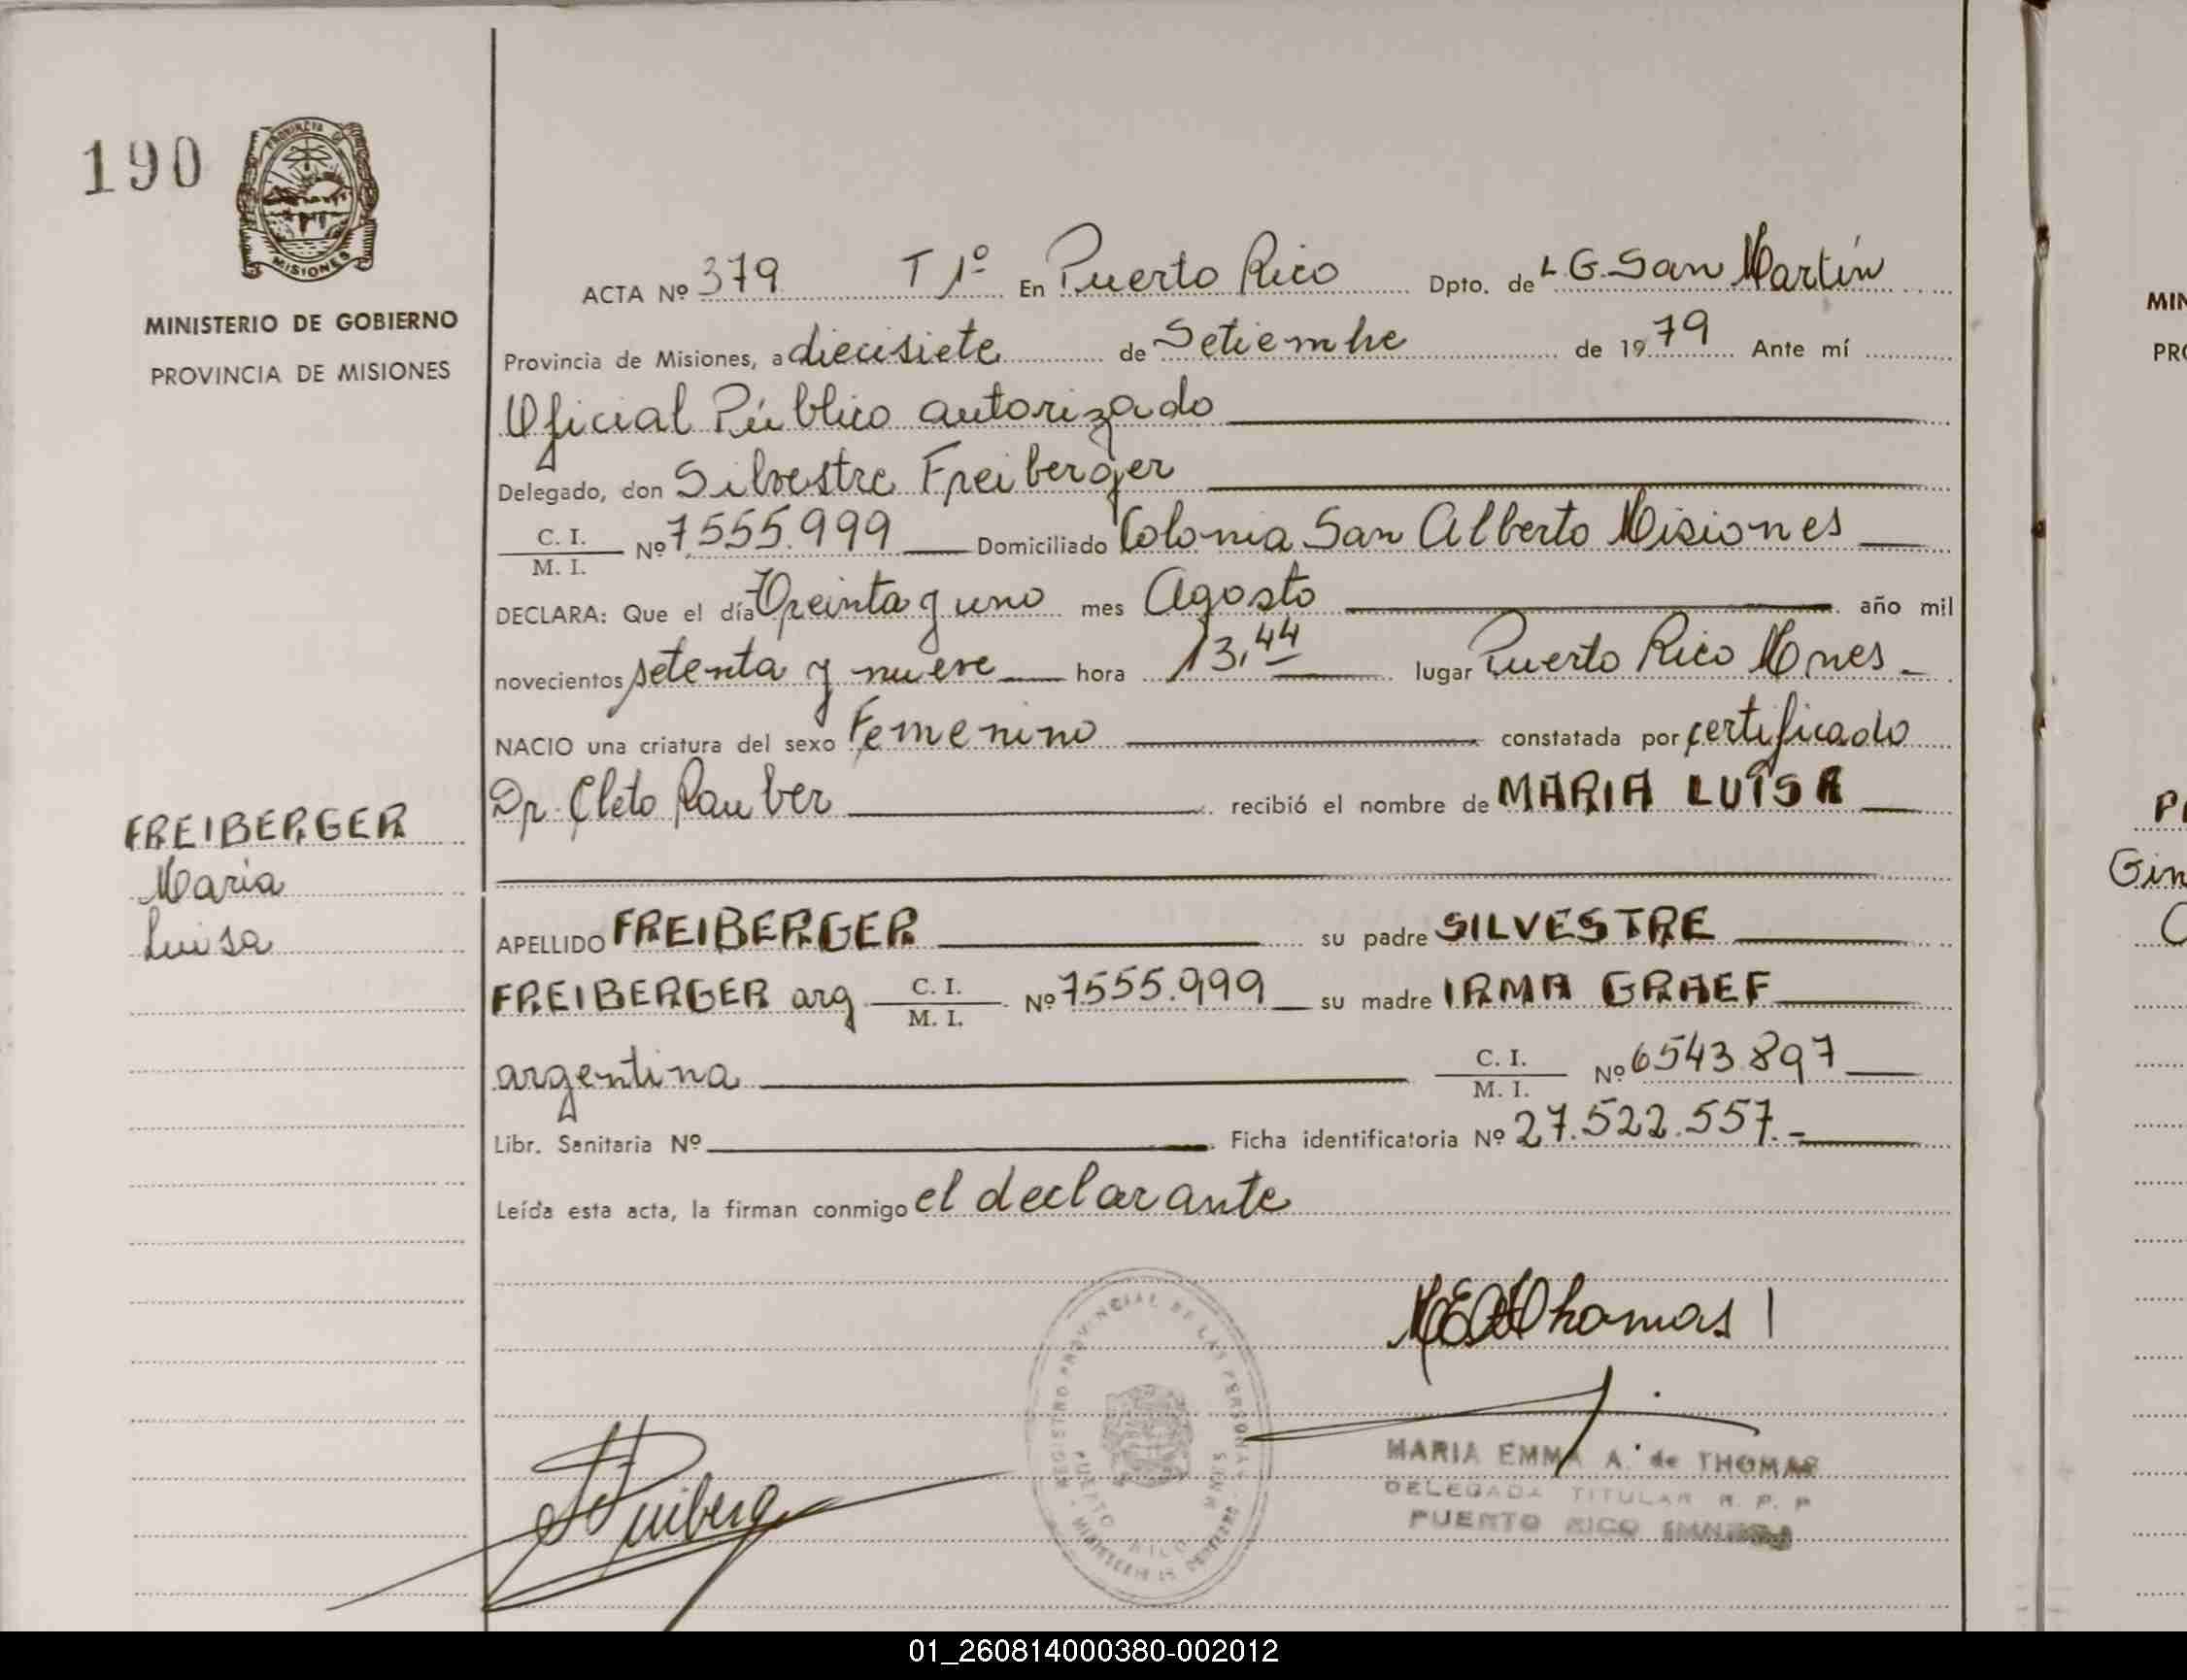 190
PROVINCIA DE
MISIONES
MINISTERIO DE GOBIERNO
PROVINCIA DE MISIONES
FREIBERGER
Maria
Luisa
ACTA Nº 379 T 1º En Puerto Rico Dpto. de L.G. San Martín
Provincia de Misiones, a diecisiete de Setiembre de 1979 Ante mí
Oficial Público autorizado
Delegado, don Silvestre Freiberger
C. I.
M. I. Nº 7.555.999 Domiciliado Colonia San Alberto Misiones
DECLARA: Que el día Treinta y uno mes Agosto año mil
novecientos setenta y nueve hora 13,44 lugar Puerto Rico Mnes
NACIO una criatura del sexo Femenino constatada por certificado
Dr. Cleto Rauber recibió el nombre de MARIA LUISA
APELLIDO FREIBERGER su padre SILVESTRE
FREIBERGER arg C. I.
M. I. Nº 7.555.999 su madre IRMA GRAEF
argentina C. I.
M. I. Nº 6543.897
Libr. Sanitaria Nº Ficha identificatoria Nº 27.522.557.-
Leída esta acta, la firman conmigo el declarante
Thomas
REGISTRO PROVINCIAL DE LAS PERSONAS
PUERTO RICO
MARIA EMMA A. de THOMAS
DELEGADA TITULAR R. P. P
PUERTO RICO
MIN
PRO
Gin
01_260814000380-002012